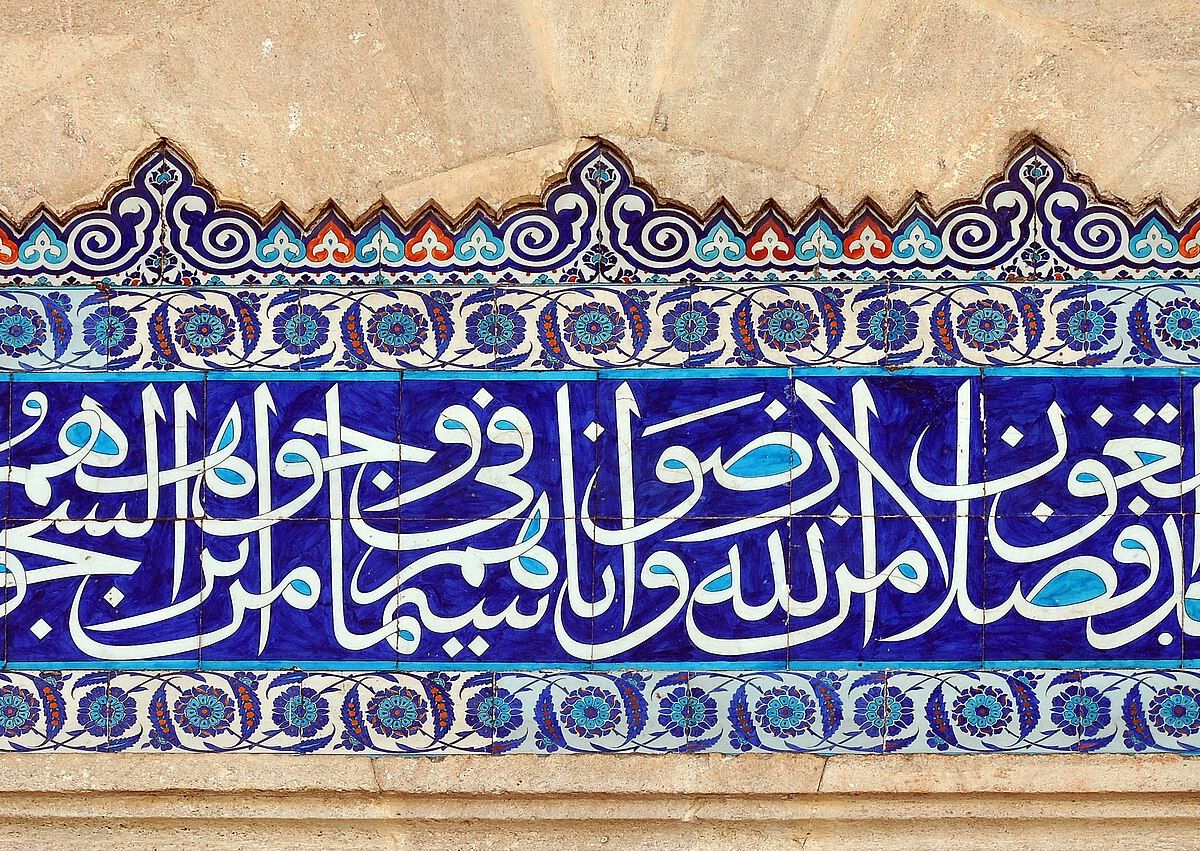 يبتغون فضلا من الله ورضوانا سيماهم في وجوههم من اثر السجو